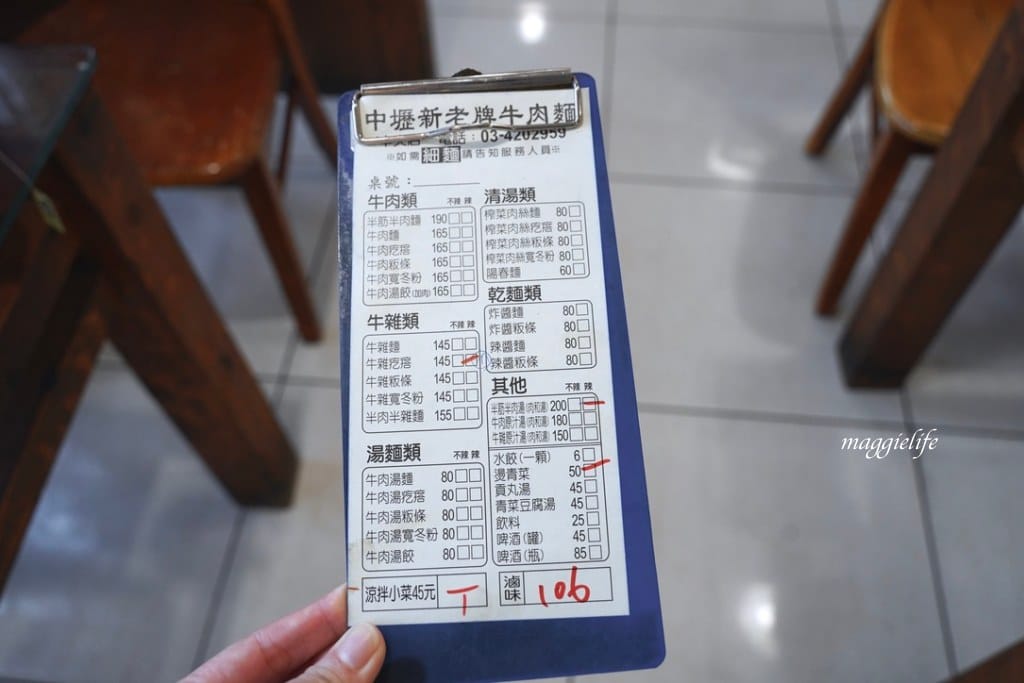 中壢新老牌牛肉麵
電話：03-4202959
※如需細麵請告知服務人員※
桌號：
牛肉類 不辣 辣
半筋半肉麵 190
牛肉麵 165
牛肉疙瘩 165
牛肉粄條 165
牛肉寬冬粉 165
牛肉湯餃(加肉) 165
牛雜類 不辣 辣
牛雜麵 145
牛雜疙瘩 145
牛雜粄條 145
牛雜寬冬粉 145
半肉半雜麵 155
湯麵類 不辣 辣
牛肉湯麵 80
牛肉湯疙瘩 80
牛肉湯粄條 80
牛肉湯寬冬粉 80
牛肉湯餃 80
涼拌小菜45元
清湯類
榨菜肉絲麵 80
榨菜肉絲疙瘩 80
榨菜肉絲粄條 80
榨菜肉絲寬冬粉 80
陽春麵 60
乾麵類
炸醬麵 80
炸醬粄條 80
辣醬麵 80
辣醬粄條 80
其他 不辣 辣
半筋半肉湯(肉和湯) 200
牛肉原汁湯(肉和湯) 180
牛雜原汁湯(肉和湯) 150
水餃(一顆) 6
燙青菜 50
貢丸湯 45
青菜豆腐湯 45
飲料 25
啤酒(罐) 45
啤酒(瓶) 85
滷味 106
maggielife